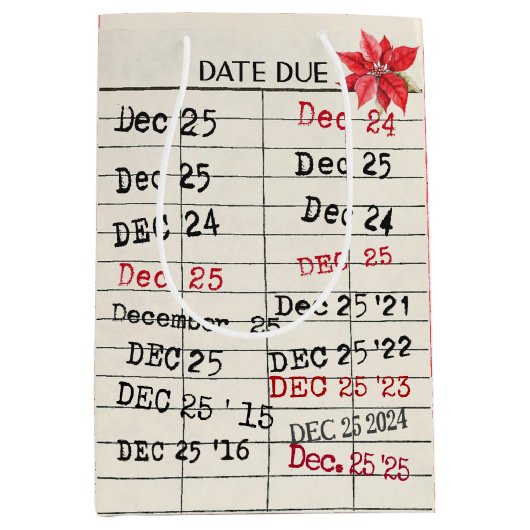 DATE DUE
Dec 25
Dec 25
DEC 24
Dec 25
December 25
DEC 25
DEC 25 '15
DEC 25 '16
Dec 24
Dec 25
Dec 24
DEC 25
Dec 25 '21
DEC 25 '22
DEC 25 '23
DEC 25 2024
Dec. 25 '25